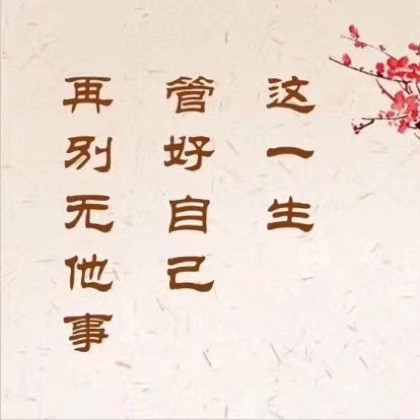 这一生
管好自己
再别无他事